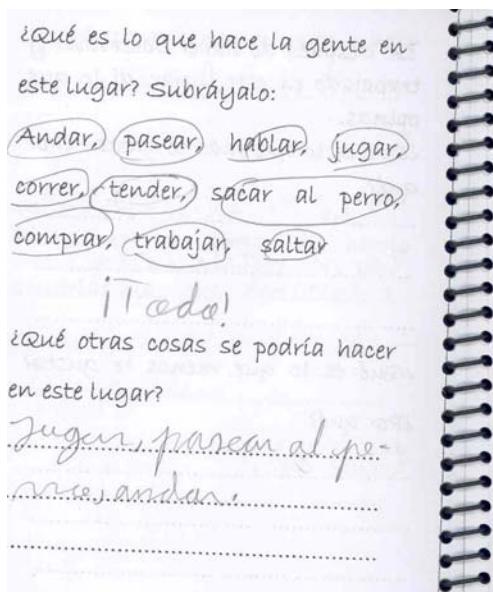 ¿Qué es lo que hace la gente en
este lugar? Subráyalo:
Andar, pasear, hablar, jugar,
correr, tender, sacar al perro,
comprar, trabajar, saltar
¡Todo!
¿Qué otras cosas se podría hacer
en este lugar?
Jugar, pasear al pe-
rro, andar.